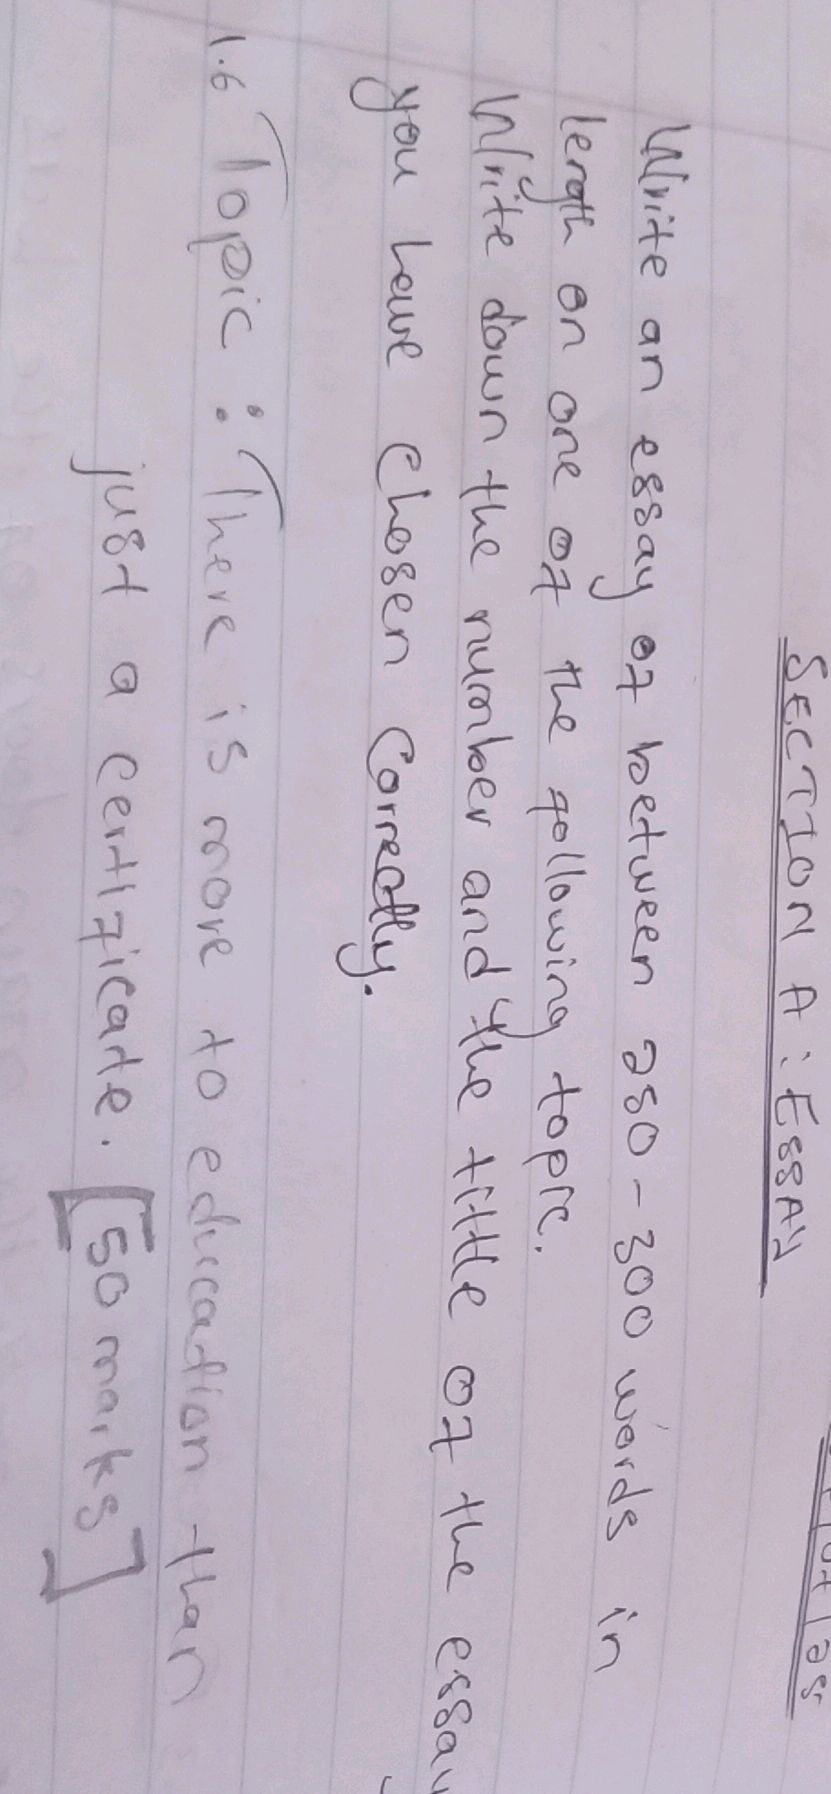 SECTION A : ESSAY
Write an essay of between 250 - 300 words in
length on one of the following topic.
Write down the number and the tittle of the essay
you have chosen correctly.
1.6 Topic : There is more to education than
just a certificate. [50 marks]